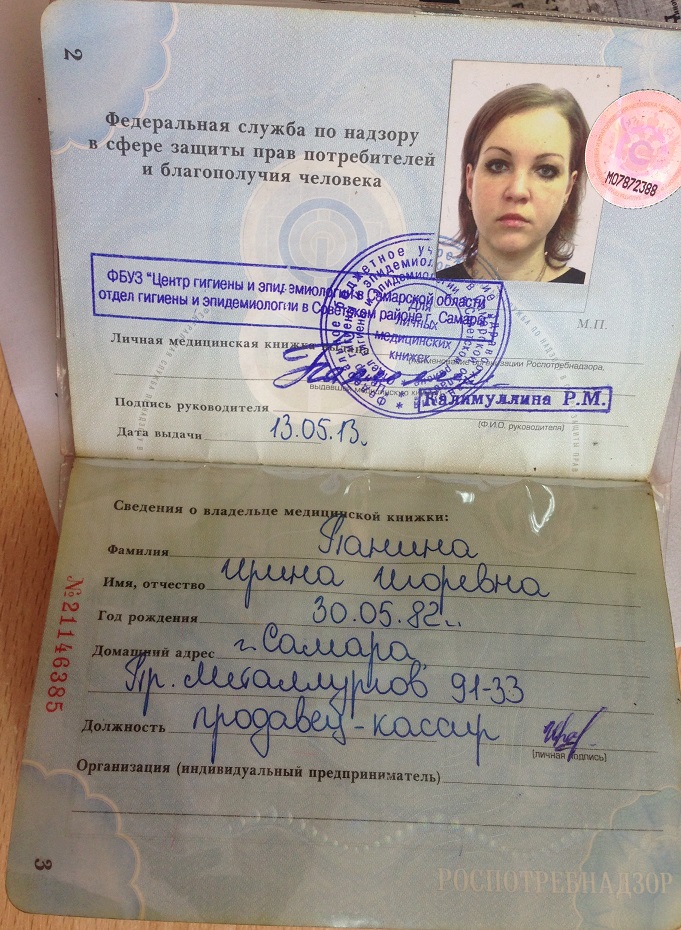 2
Федеральная служба по надзору
в сфере защиты прав потребителей
и благополучия человека
МО7872388
ФБУЗ "Центр гигиены и эпидемиологии в Самарской области
отдел гигиены и эпидемиологии в Советском районе г. Самара"
Для
личных
медицинских
книжек
М.П.
Личная медицинская книжка выдана
(наименование организации Роспотребнадзора,
выдавшей медицинскую книжку)
Подпись руководителя
Калимуллина Р.М.
(Ф.И.О. руководителя)
Дата выдачи 13.05.13г.
Сведения о владельце медицинской книжки:
Фамилия Панина
Имя, отчество Ирина Игоревна
Год рождения 30.05.82г.
Домашний адрес г. Самара
Пр. Металлургов 91-33
Должность продавец-кассир
(личная подпись)
Организация (индивидуальный предприниматель)
№21146385
3
РОСПОТРЕБНАДЗОР